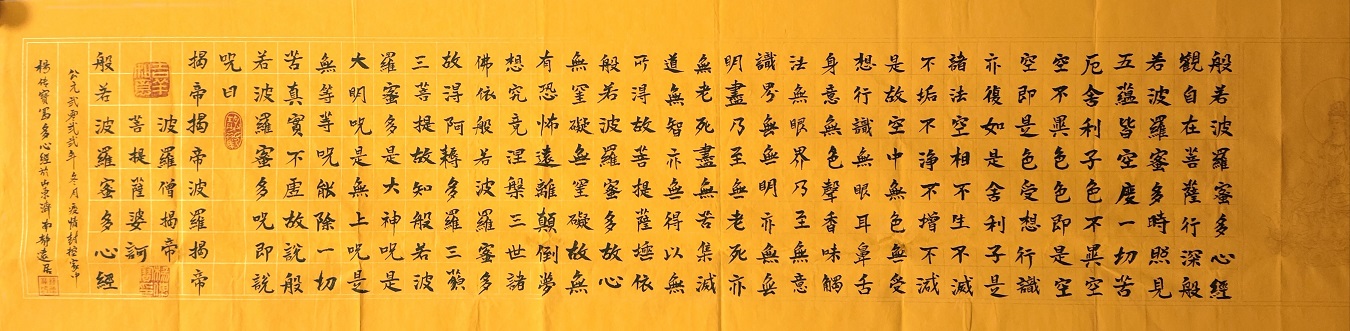 般若波羅蜜多心經
觀自在菩薩行深般
若波羅蜜多時照見
五蘊皆空度一切苦
厄舍利子色不異空
空不異色色即是空
空即是色受想行識
亦復如是舍利子是
諸法空相不生不滅
不垢不淨不增不減
是故空中無色無受
想行識無眼耳鼻舌
身意無色聲香味觸
法無眼界乃至無意
識界無無明亦無無
明盡乃至無老死亦
無老死盡無苦集滅
道無智亦無得以無
所得故菩提薩埵依
般若波羅蜜多故心
無罣礙無罣礙故無
有恐怖遠離顛倒夢
想究竟涅槃三世諸
佛依般若波羅蜜多
故得阿耨多羅三藐
三菩提故知般若波
羅蜜多是大神咒是
大明咒是無上咒是
無等等咒能除一切
苦真實不虛故說般
若波羅蜜多咒即說
咒曰
揭帝揭帝波羅揭帝
波羅僧揭帝
菩提薩婆訶
般若波羅蜜多心經
公元弍零弍弍年冬月疫情封控家中
楊寶寫多心經於山東濟南靜遠居